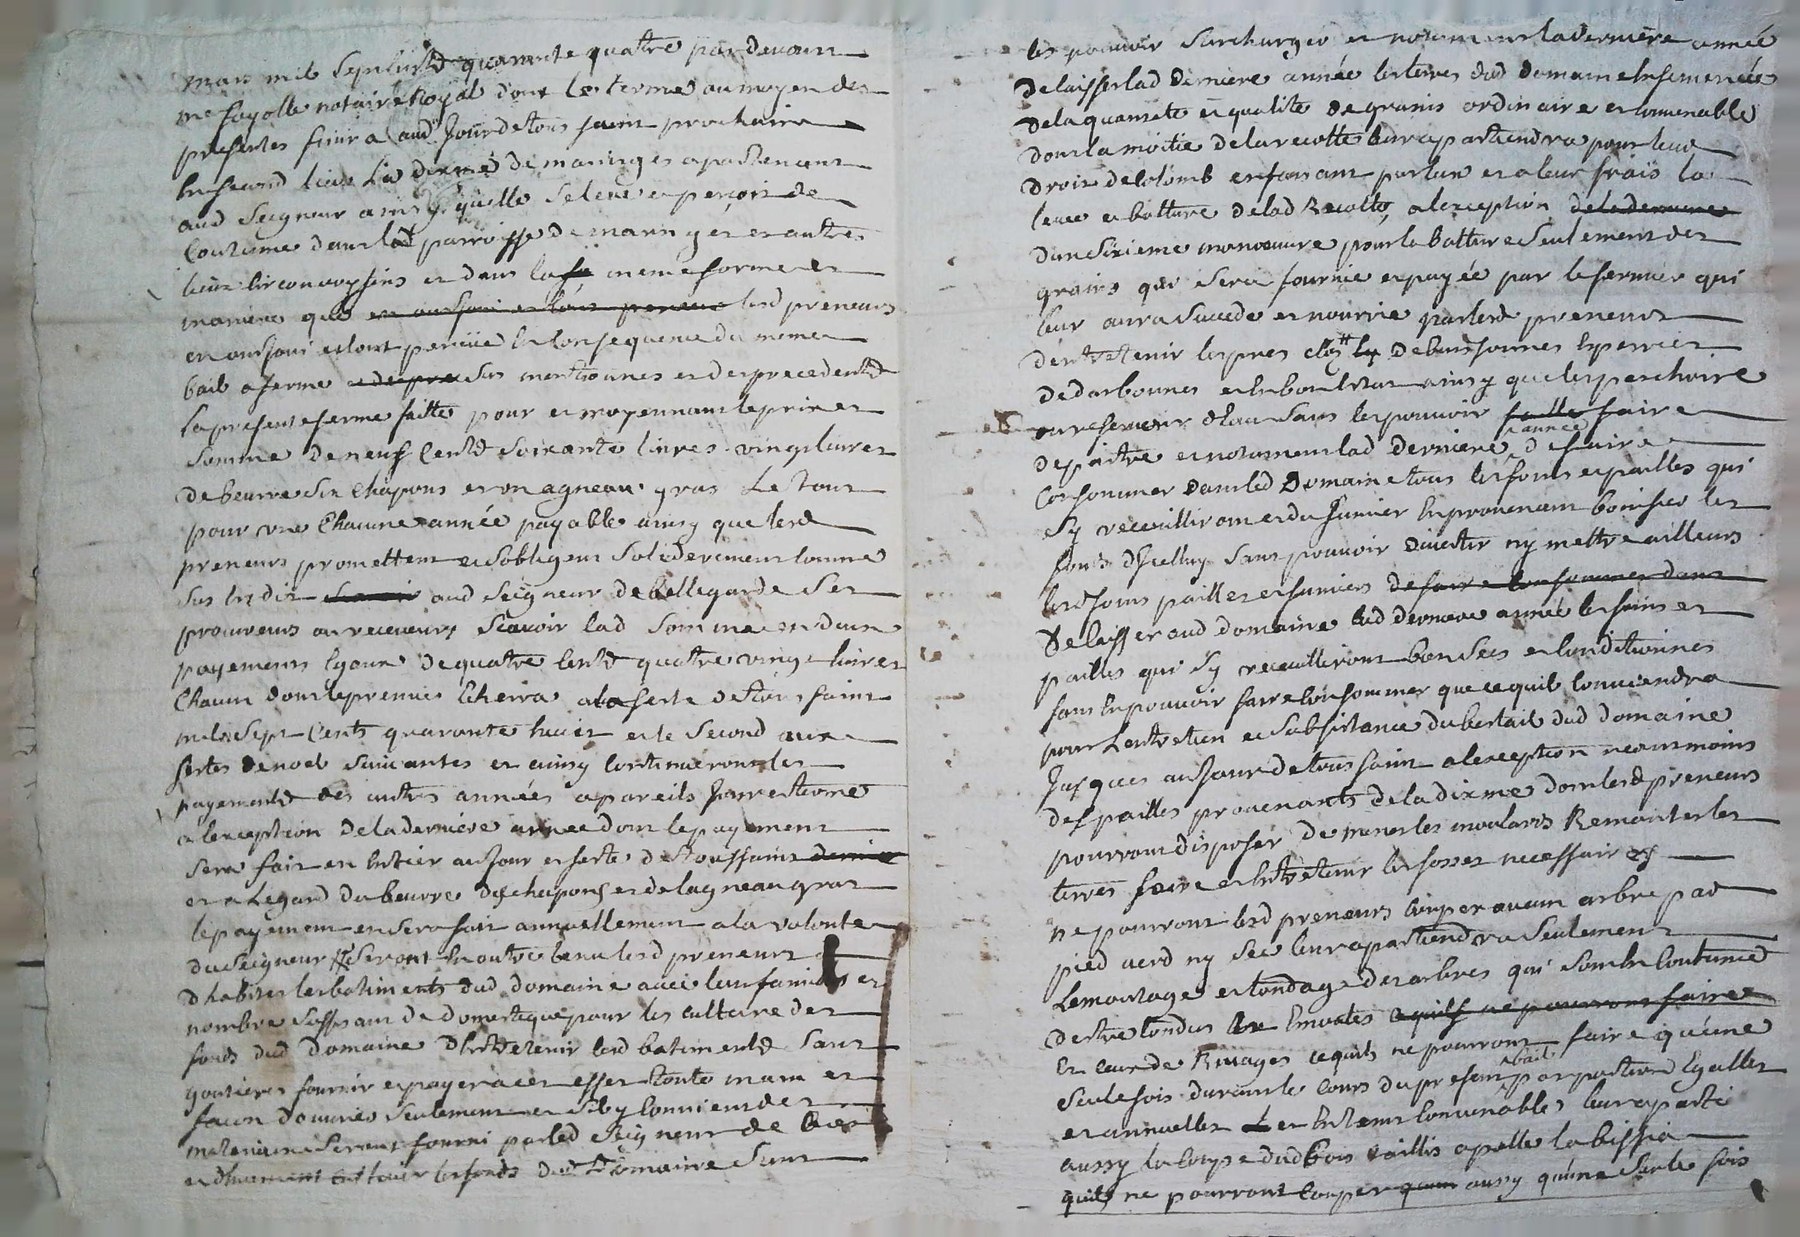 mars mil sept cents quarante quatre par devant
me fayolle notaire Royal dont le terme au moyen des
presentes finira aud Jour de tous saint prochain
En second lieu La dixme de maringes apartenant
aud Seigneur ainsy quelle se leve et perçoit de
Coutume dans lad parroisse de maringes et autres
lieux circonvoysins et dans la meme forme et
maniere que lesd preneurs
en ont joui et lont perçüe En consequence du meme
bail a ferme sus mentionnes et des precedents
la presente ferme faitte pour et moyennant le prix et
somme de neuf Cents soixante livres vingt livres
de beurre six chapons et un agneau gras Le tout
pour une Chacune année payable ainsy que lesd
preneurs promettent et sobligent solidairement comme
sus est dit aud Seigneur de bellegarde ses
procureurs ou receveurs scavoir lad somme en deux
payements Egaux de quatre cents quatre vingt livres
Chacun dont le premier Echerra a la feste de tous saint
mil sept Cents quarante huit et le second aux
festes de noel suivantes et ainsy continueront les
payements des autres années a pareils Jour et terme
a lexception de la derniere année dont le payement
sera fait en Entier au Jour et feste de toussaint
et a legard du beurre des chapons et de lagneau gras
le payement en sera fait annuellement a la volonté
du Seigneur Seront En outre tenu lesd preneurs
dhabiter les batiments dud domaine avec leur famille et
nombre suffisant de domestique pour les culture des
fonds dud Domaine dEntretenir lesd batiments sans
goutieres fournir et payer a cet effet toute main et
facon douvrier seulement et sil y convient des
materiaux seront fourni par led Seigneur de
cultiver les fonds dud Domaine sans
les pouvoir surcharger et notament la derniere année
de laisser lad derniere année les terres dud domaine Ensemencées
de la quantité et qualité de grains ordinaire et convenable
dont la moitié de la recolte leur apartiendra pour leur
droit de Colomb en faisant par eux et a leur frais la
levée et batture de lad Recolte, a lexception
dun sixieme manoeuvre pour la batture seulement des
grains qui sera fournie et payée par le fermier qui
leur aura succede et nourrie par lesd preneurs
dentretenir les pres clos de buissonnes Espierrer
de darbounes et en bon Etat ainsy que les pescheoire
ou reservoir deau sans les pouvoir faire
depaitre et notament lad derniere année de faire
Consommer dans led Domaine tous les foins et pailles qui
sy recueilliront et du fumier En provenant bonifier les
fonds dIcelluy sans pouvoir divertir ny mettre ailleurs
lesd foins pailles et fumiers
de laisser aud domaine lad derniere année les foins et
pailles qui sy recueilliront bien secs et conditionnes
sans En pouvoir faire consommer que ce quil conviendra
pour Lentretien et subsistance du bestail dud domaine
Jusques au Jour de tous saint a lexception neantmoins
des pailles provenants de la dixme dont lesd preneurs
pourront disposer de mener les moularis Remonter les
terres faire et Entretenir les fosses necessaires
ne pourront lesd preneurs couper aucun arbre par
pied verd ny sec leur apartiendra seulement
Lemontage et tondage des arbres qui sont En Coutume
destre tondus Emontes
Et ceux de Rivages ce quils ne pourront faire quune
seule fois durant le cours du present bail par portion Egalles
et annuelles et En tems convenable, leur aparti
aussy la coupe dud bois taillis apellé la bissia
quils ne pourront couper aussy quune seule fois